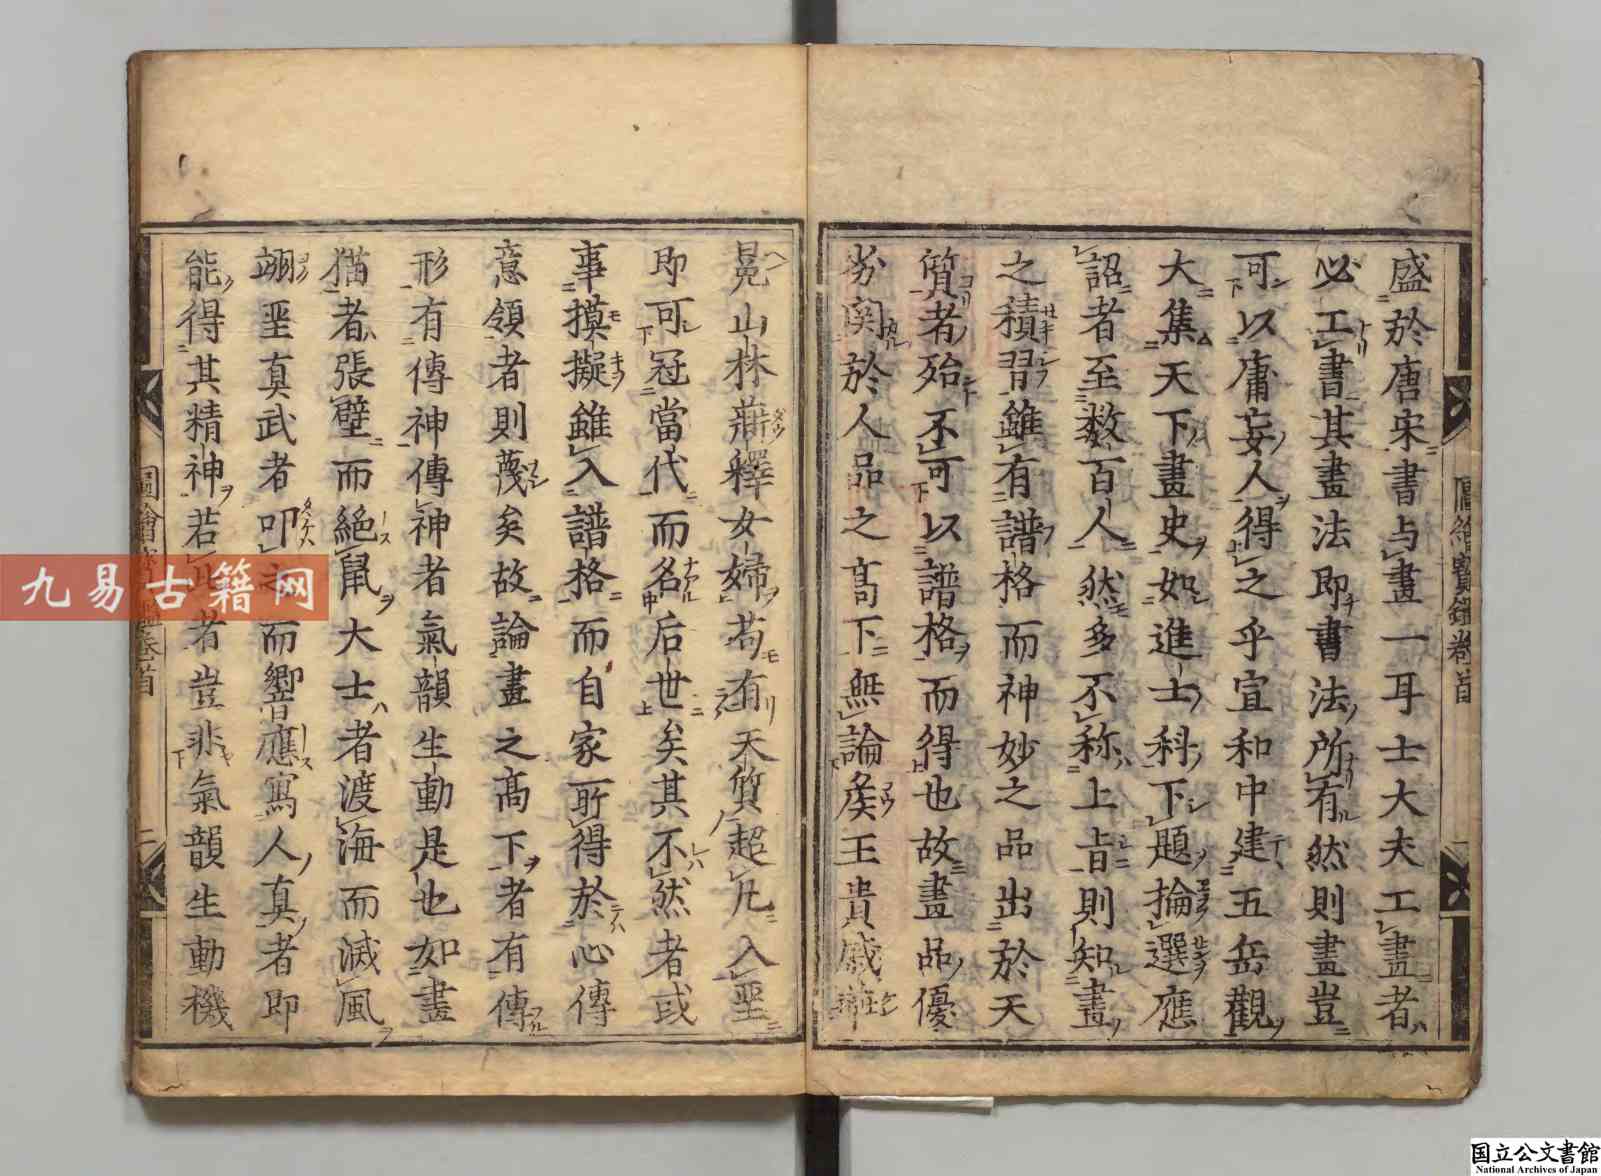 盛於唐宋書与畫一耳士大夫工畫者
必工書其畫法即書法所有然則畫豈
可以庸妄人得之乎宣和中建五岳觀
大集天下畫史如進士科下題掄選應
詔者至数百人然多不称上旨則知畫
之積習雖有譜格而神妙之品出於天
質者殆不可以譜格而得也故畫品優
劣関於人品之高下無論侯王貴戚
冕山林
釋女婦苟有天質超凡入聖
即可冠當代而名后世矣其不然者或
事摸擬雖入譜格而自家所得於心傳
意領者則蔑矣故論畫之高下者有傳
形有傳神傳神者氣韻生動是也如畫
猫者張壁而絶鼠大士者渡海而滅風
翊聖真武者叩之而響應寫人真者即
能得其精神若此者豈非氣韻生動機
圖繪寶鑑卷首
一
圖繪
卷首
二
九易古籍网
国立公文書館
National Archives of Japan